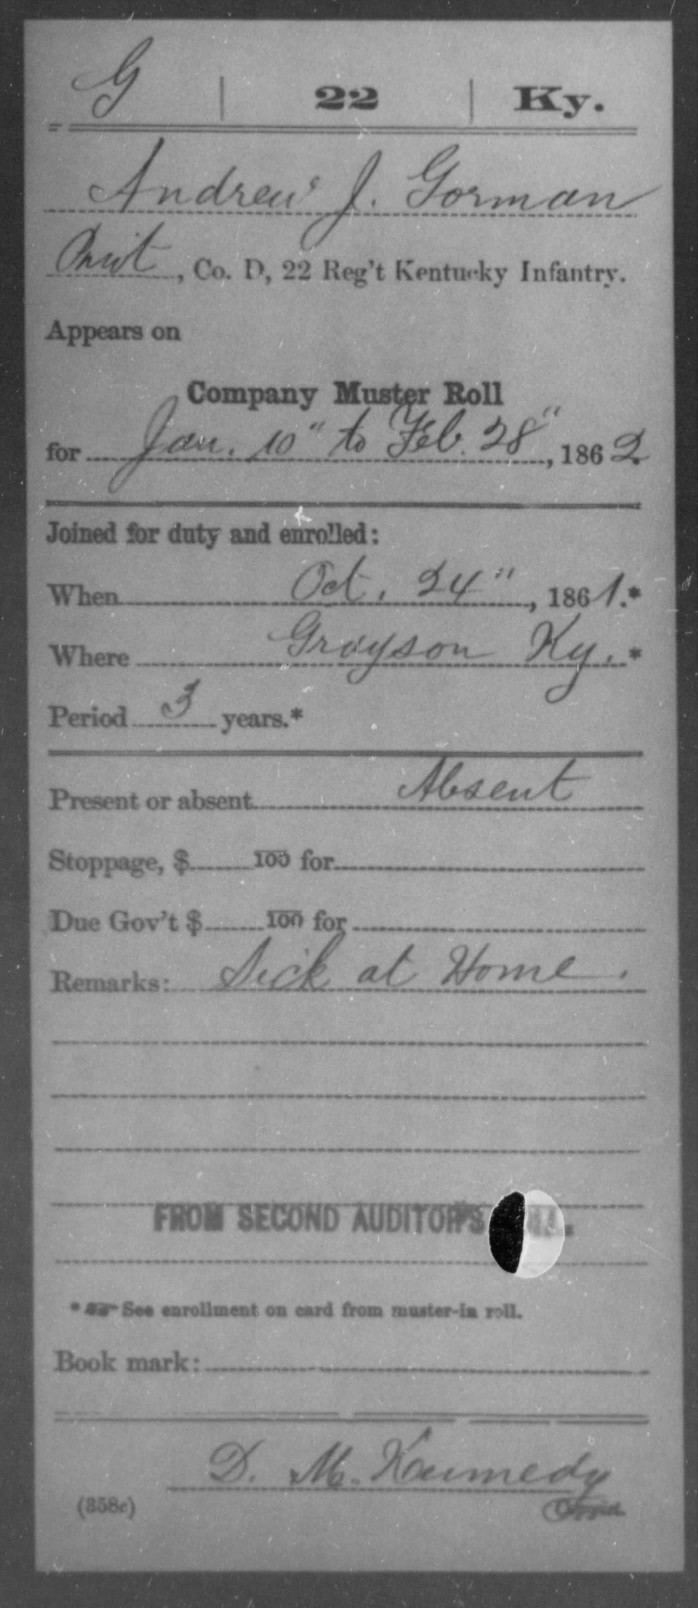 G | 22 | Ky.
Andrew J. Gorman
Privt, Co. D, 22 Reg't Kentucky Infantry.
Appears on
Company Muster Roll
for Jan. 10" to Feb. 28", 1862
Joined for duty and enrolled:
When Oct. 24", 1861.*
Where Grayson Ky.*
Period 3 years.*
Present or absent Absent
Stoppage, $ 100 for
Due Gov't $ 100 for
Remarks: Sick at Home.
FROM SECOND AUDITOR'S
* See enrollment on card from muster-in roll.
Book mark:
D. M. Kennedy
(358c)